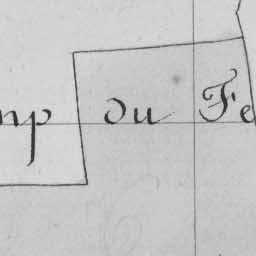 mp du Fe